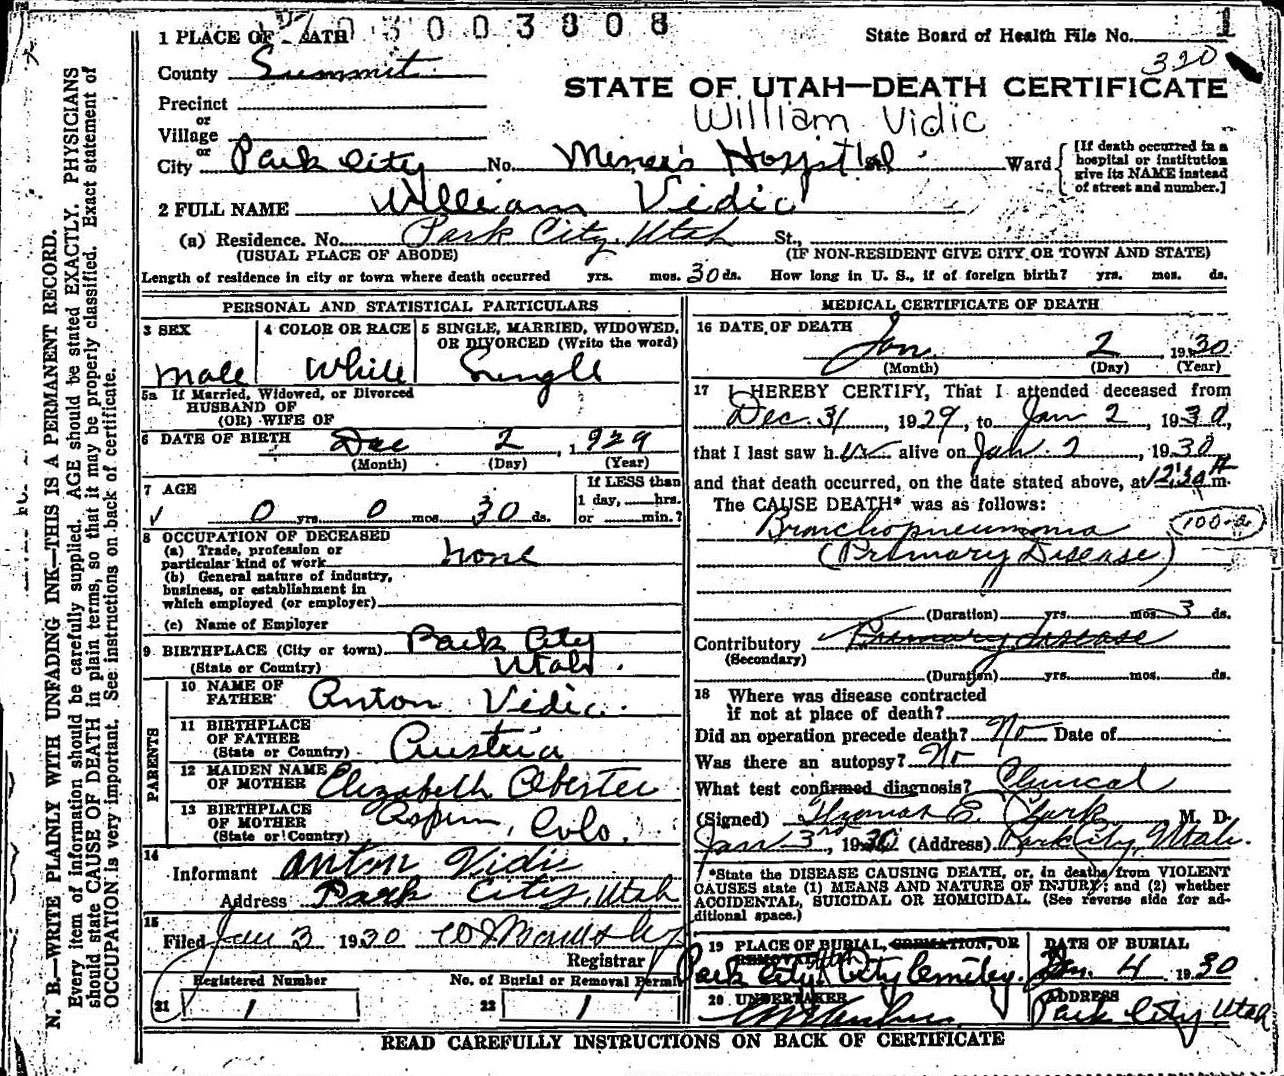 3 0 0 3 8 0 8
1
1 PLACE OF DEATH State Board of Health File No.
320
County Summit
STATE OF UTAH—DEATH CERTIFICATE
William Vidic
Precinct
or
Village
or
City Park City No. Miner's Hospital Ward [If death occurred in a hospital or institution give its NAME instead of street and number.]
2 FULL NAME William Vidic
(a) Residence. No. Park City, Utah St.,
(USUAL PLACE OF ABODE) (IF NON-RESIDENT GIVE CITY OR TOWN AND STATE)
Length of residence in city or town where death occurred yrs. mos. 30 ds. How long in U. S., if of foreign birth? yrs. mos. ds.
PERSONAL AND STATISTICAL PARTICULARS
3 SEX 4 COLOR OR RACE 5 SINGLE, MARRIED, WIDOWED,
OR DIVORCED (Write the word)
Male White Single
5a If Married, Widowed, or Divorced
HUSBAND OF
(OR) WIFE OF
6 DATE OF BIRTH Dec 2, 1929
(Month) (Day) (Year)
7 AGE If LESS than
1 day, hrs.
0 yrs. 0 mos. 30 ds. or min.?
8 OCCUPATION OF DECEASED
(a) Trade, profession or
particular kind of work none
(b) General nature of industry,
business, or establishment in
which employed (or employer)
(c) Name of Employer
9 BIRTHPLACE (City or town) Park City
(State or Country) Utah.
PARENTS
10 NAME OF
FATHER Anton Vidic.
11 BIRTHPLACE
OF FATHER
(State or Country) Austria
12 MAIDEN NAME
OF MOTHER Elizabeth Obester
13 BIRTHPLACE
OF MOTHER
(State or Country) Aspen, Colo.
14
Informant Anton Vidic
Address Park City, Utah
15
Filed Jan 3 1930
Registrar
Registered Number No. of Burial or Removal Permit
21 1 22 1
MEDICAL CERTIFICATE OF DEATH
16 DATE OF DEATH
Jan. 2, 1930
(Month) (Day) (Year)
17 I HEREBY CERTIFY, That I attended deceased from
Dec. 31, 1929, to Jan 2, 1930,
that I last saw h alive on Jan. 2, 1930
and that death occurred, on the date stated above, at 12:30 A m.
The CAUSE DEATH* was as follows:
Bronchopneumonia
(Primary Disease)
(Duration) yrs. mos. 3 ds.
Contributory Primary disease
(Secondary)
(Duration) yrs. mos. ds.
18 Where was disease contracted
if not at place of death?
Did an operation precede death? No Date of
Was there an autopsy? No
What test confirmed diagnosis? Clinical
(Signed) Thomas E. Clark M. D.
Jan 3rd, 1930 (Address) Park City, Utah.
*State the DISEASE CAUSING DEATH, or, in deaths from VIOLENT
CAUSES state (1) MEANS AND NATURE OF INJURY; and (2) whether
ACCIDENTAL, SUICIDAL OR HOMICIDAL. (See reverse side for ad-
ditional space.)
19 PLACE OF BURIAL, CREMATION, OR REMOVAL DATE OF BURIAL
Park City Utah City Jan. 4 1930
20 UNDERTAKER ADDRESS
Park City, Utah
READ CAREFULLY INSTRUCTIONS ON BACK OF CERTIFICATE
N. B.—WRITE PLAINLY WITH UNFADING INK—THIS IS A PERMANENT RECORD.
Every item of information should be carefully supplied. AGE should be stated EXACTLY. PHYSICIANS
should state CAUSE OF DEATH in plain terms, so that it may be properly classified. Exact statement of
OCCUPATION is very important. See instructions on back of certificate.